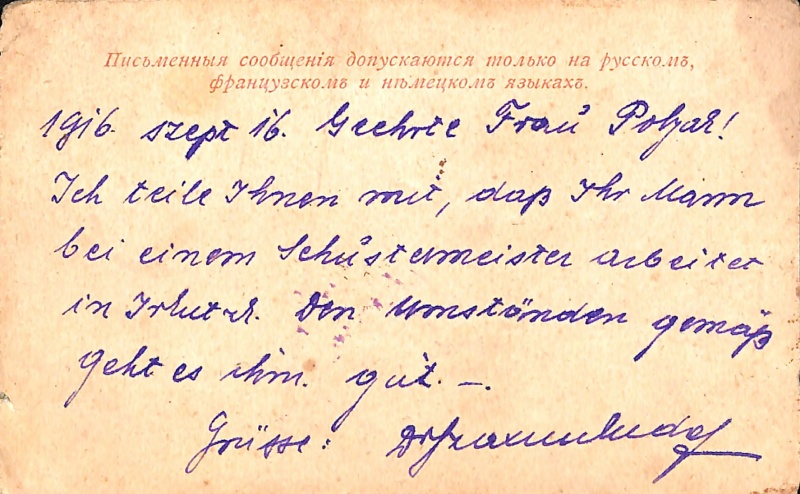 Письменныя сообщенія допускаются только на русскомъ,
французскомъ и нѣмецкомъ языкахъ.
1916. szept 16. Geehrte Frau Poljak!
Ich teile Ihnen mit, daß Ihr Mann
bei einem Schustermeister arbeitet
in Irkutzk. Den Umständen gemäß
geht es ihm. gut. —.
Grüsse: